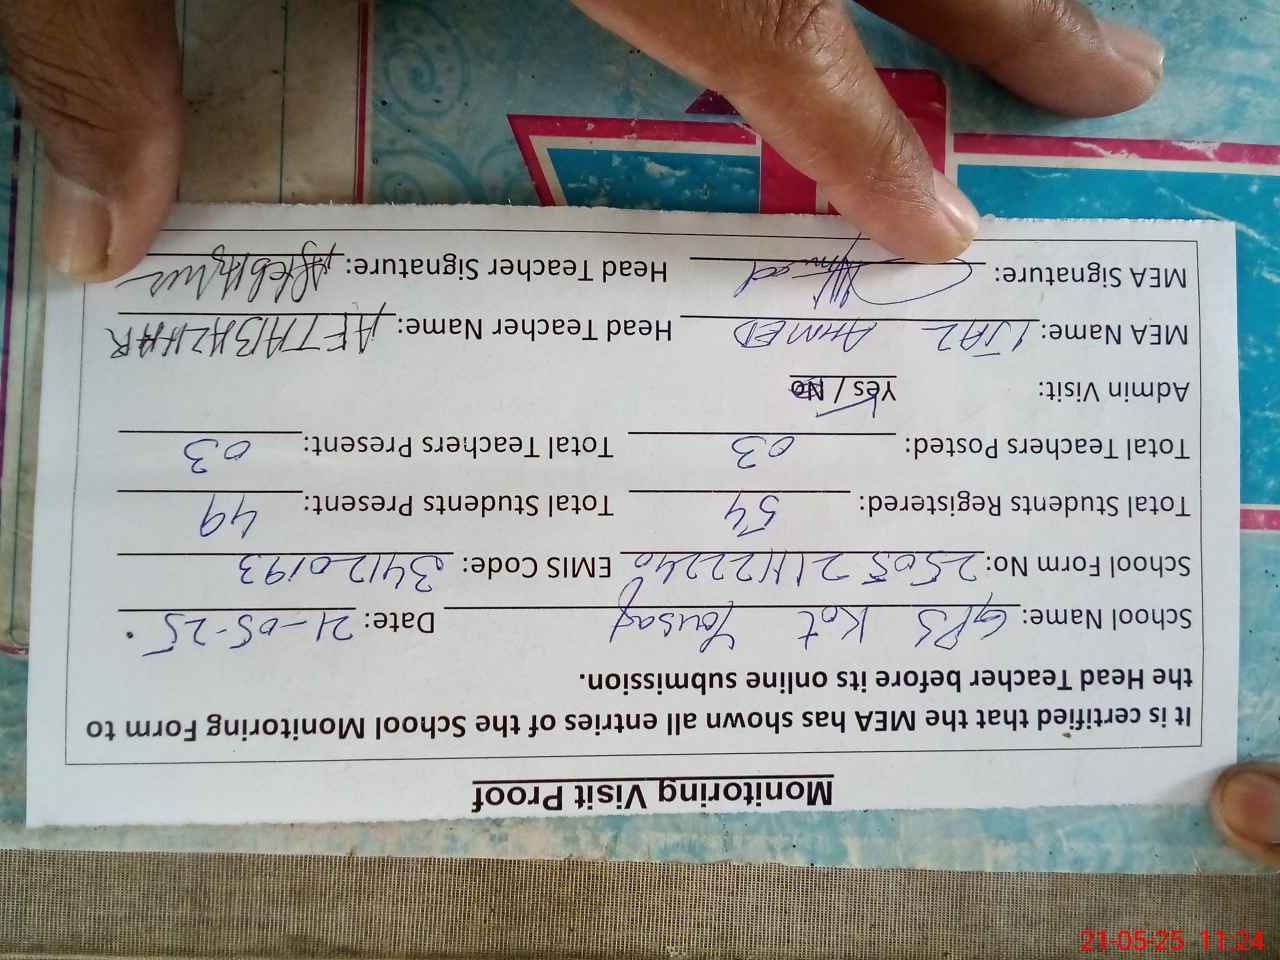 Monitoring Visit Proof
It is certified that the MEA has shown all entries of the School Monitoring Form to
the Head Teacher before its online submission.
School Name: GPS Kot Yousaf Date: 21-05-25
School Form No: 2505 21H22240 EMIS Code: 34120193
Total Students Registered: 54 Total Students Present: 49
Total Teachers Posted: 03 Total Teachers Present: 03
Admin Visit: Yes / No
MEA Name: IJAZ AHMED Head Teacher Name: AFTAB AZHAR
MEA Signature: Head Teacher Signature:
21-05-25 11:24